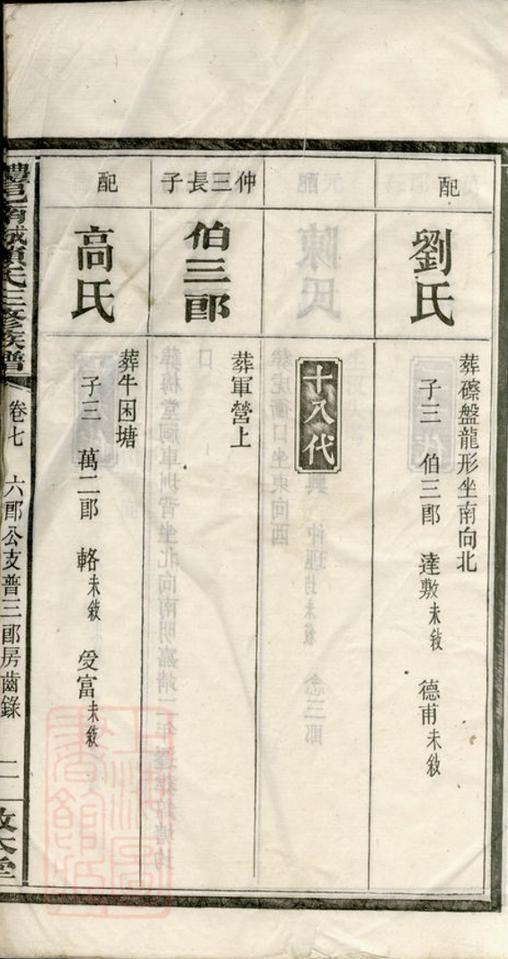 配
劉氏
葬磜盤龍形坐南向北
子三 伯三郎 達敷未敍 德甫未敍
十八代
仲三長子
伯三郎
葬軍營上
配
高氏
葬牛困塘
子三 萬二郎 輅未敍 受富未敍
氏三修族譜
卷七 六郎公支普三郎房齒錄 二